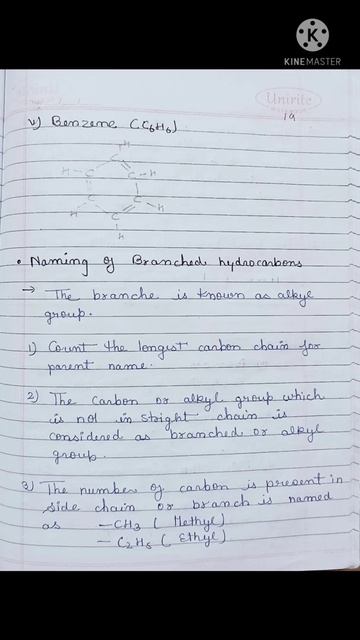 K
KINEMASTER
Unirite
19
v) Benzene (C6H6)
H
C
H - C
C - H
C
C - H
H
C
H
• Naming of Branched hydrocarbons
→ The branche is known as alkyl
group.
1) Count the longest carbon chain for
parent name.
2) The carbon or alkyl group which
is not in stright chain is
considered as branched or alkyl
group.
3) The number of carbon is present in
side chain or branch is named
as - CH3 (Methyl)
- C2H5 (Ethyl)